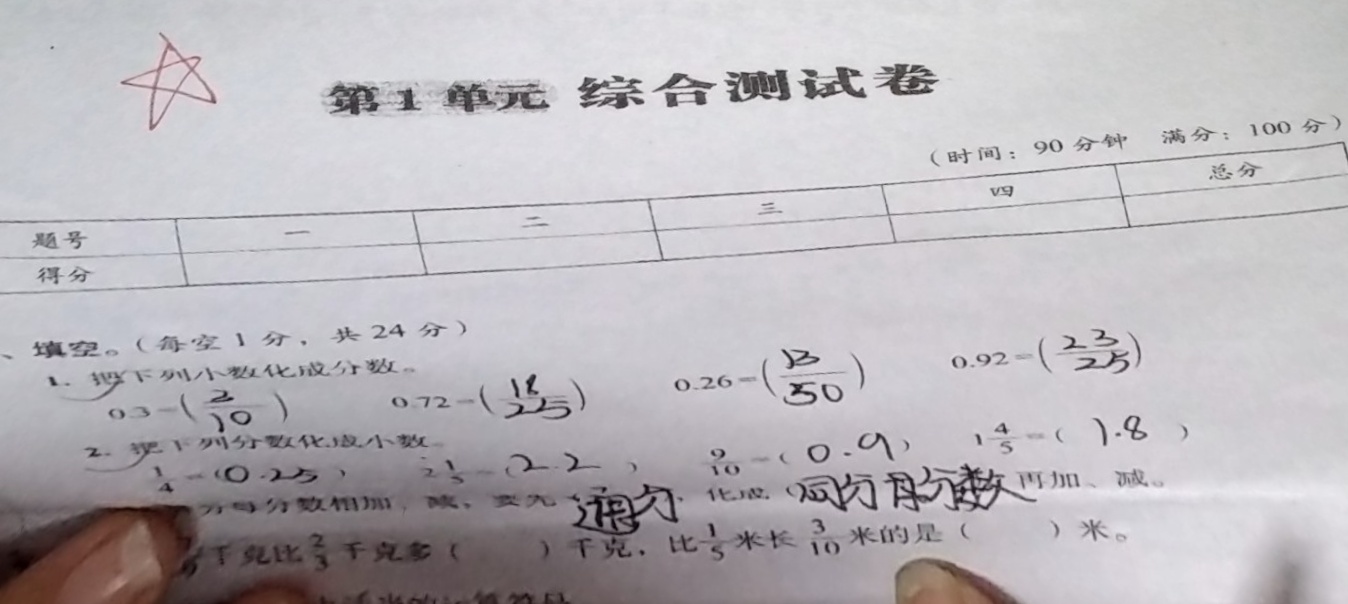 第1单元 综合测试卷
(时间：90分钟 满分：100分)
题号 一 二 三 四 总分
得分
、填空。(每空1分，共24分)
1. 把下列小数化成分数。
0.3=(3/10) 0.72=(18/25) 0.26=(13/50) 0.92=(23/25)
2. 把下列分数化成小数
1/4=(0.25) 2 1/5=(2.2) 9/10=(0.9) 1 4/5=(1.8)
分母分数相加、减，要先 通分，化成(同分母分数 再加、减。
千克比2/3千克多( )千克，比1/5米长3/10米的是( )米。